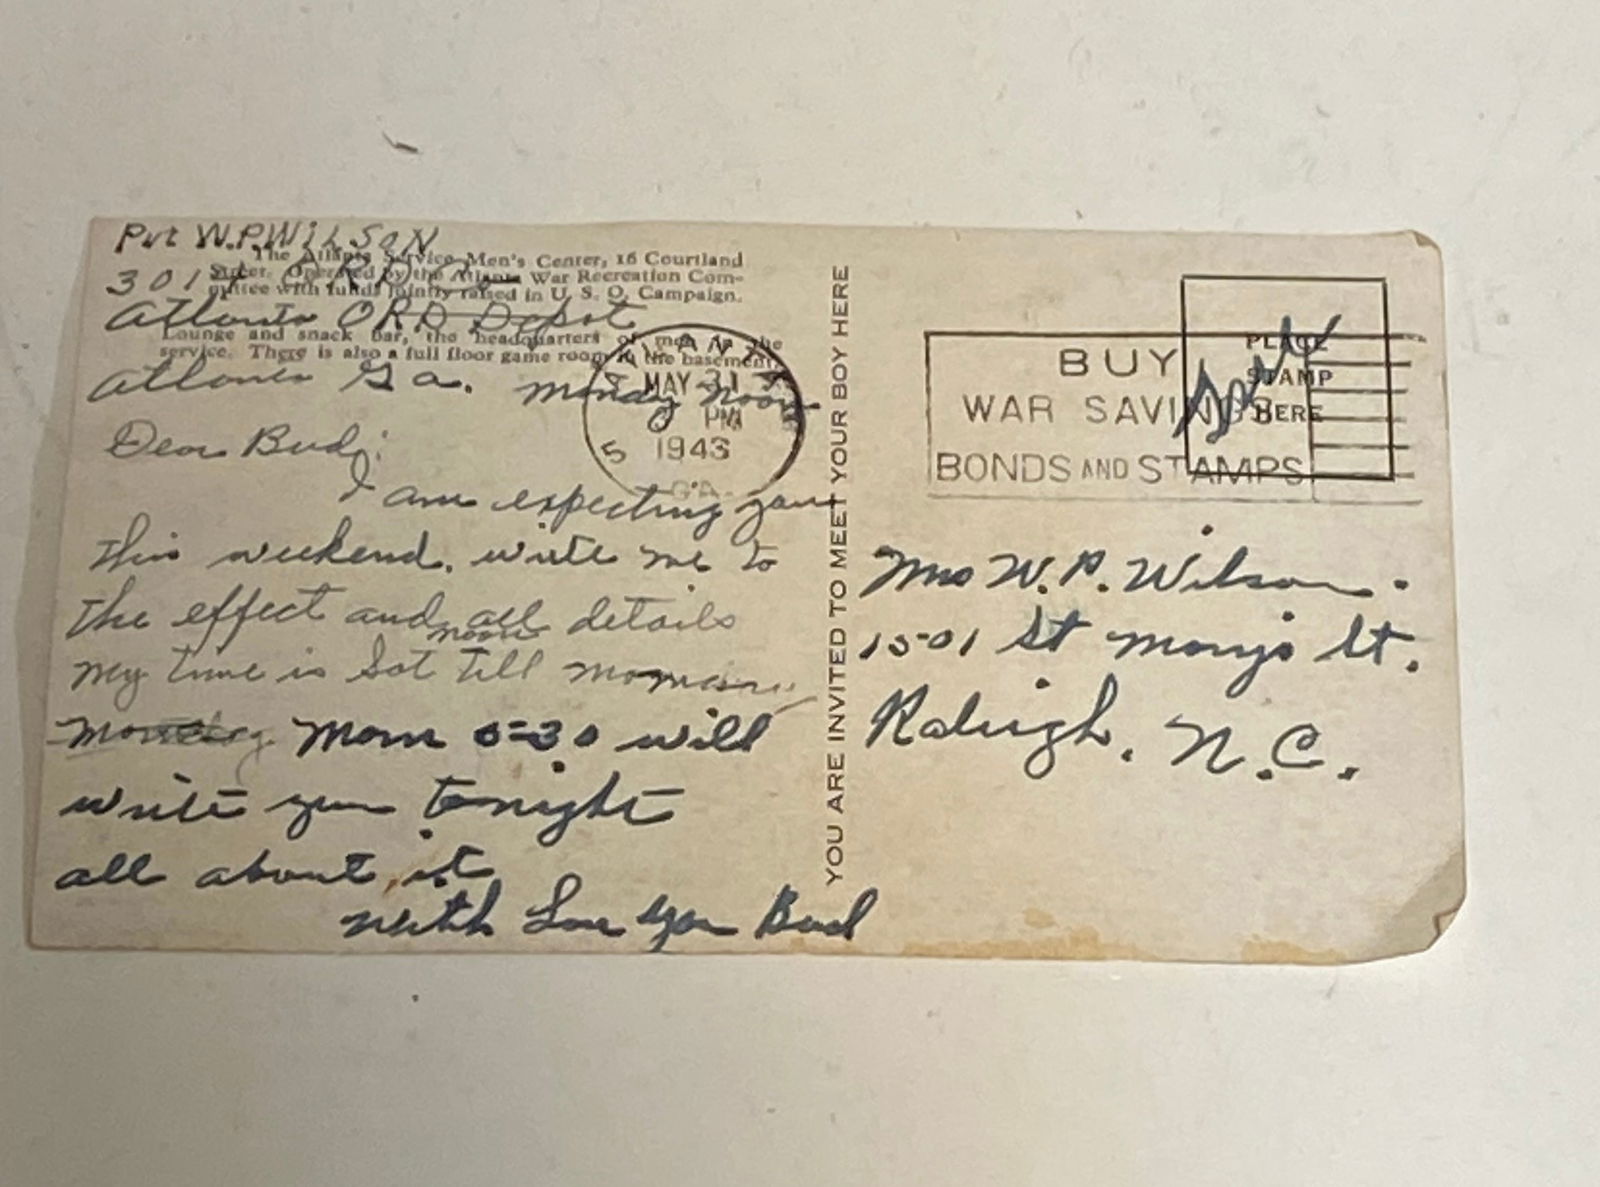 Pvt W.P. WILSON
The Atlanta Service Men's Center, 16 Courtland
Street. Operated by the Atlanta War Recreation Com-
mittee with funds jointly raised in U. S. O. Campaign.
301st
Atlanta ORD Depot
Lounge and snack bar, the headquarters of men in the
service. There is also a full floor game room in the basement.
Atlanta Ga. Monday Noon
Dear Bud:
I am expecting you
this weekend. write me to
the effect and all details
noon
My time is Sat till
Monday Morn 5:30 will
write you tonight
all about it
With Love Your Bud
YOU ARE INVITED TO MEET YOUR BOY HERE
ATLANTA
MAY 31
5 PM
1943
GA.
BUY
WAR SAVINGS
BONDS AND STAMPS
PLACE
STAMP
HERE
Mrs W. P. Wilson.
1501 St Marys St.
Raleigh, N.C.